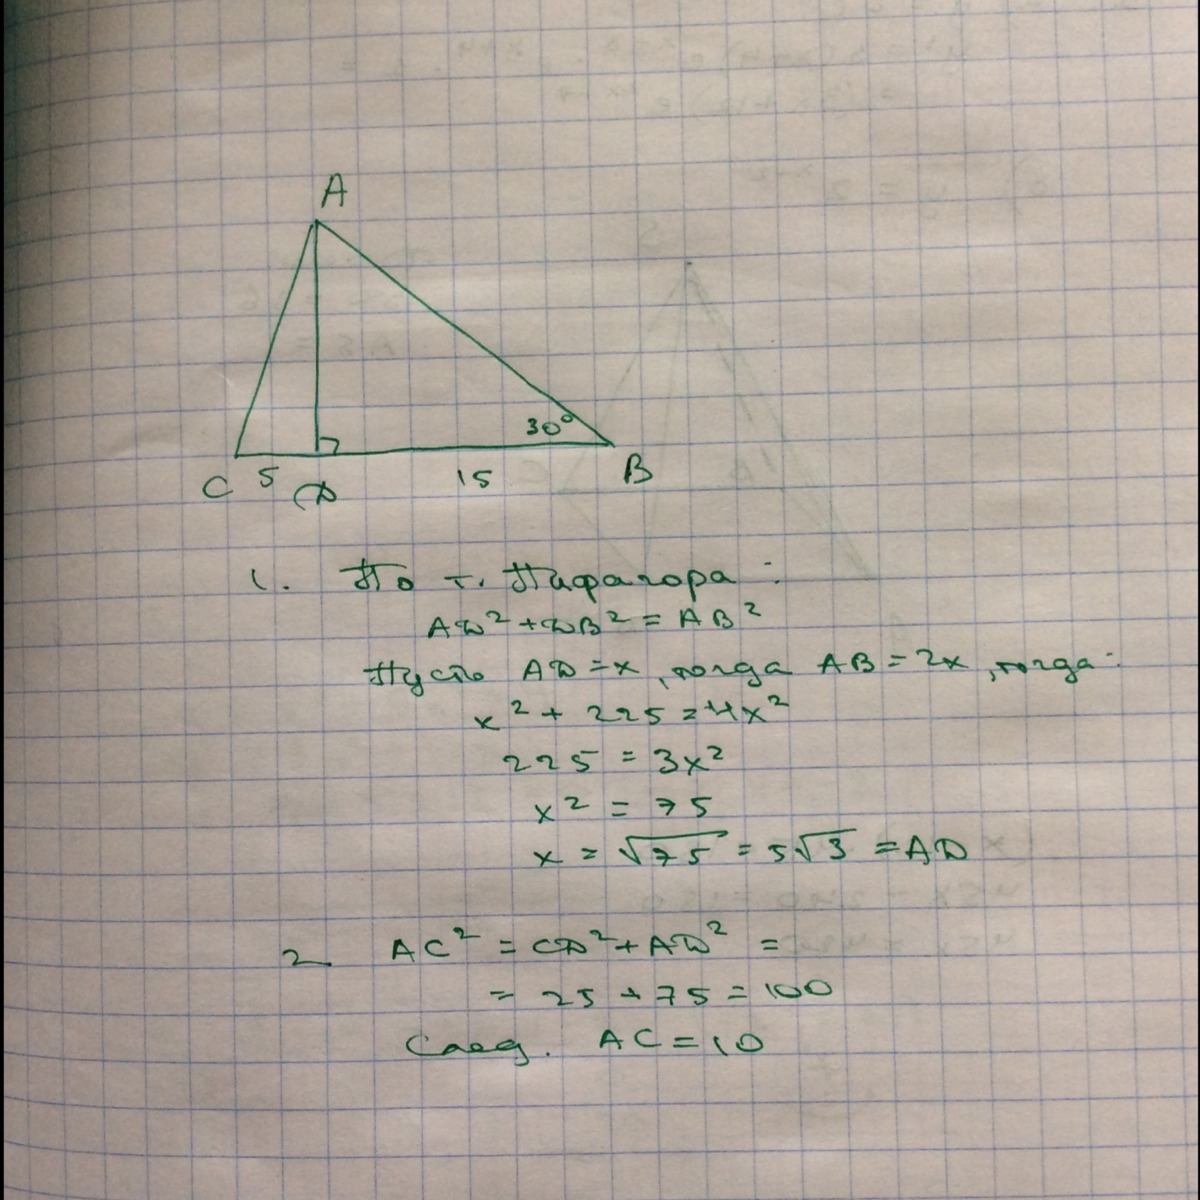 A
30°
C 5 D 15 B
1. По т. Пифагора:
AD² + DB² = AB²
Пусть AD = x, тогда AB = 2x, тогда:
x² + 225 = 4x²
225 = 3x²
x² = 75
x = √75 = 5√3 = AD
2 AC² = CD² + AD² =
= 25 + 75 = 100
След. AC = 10